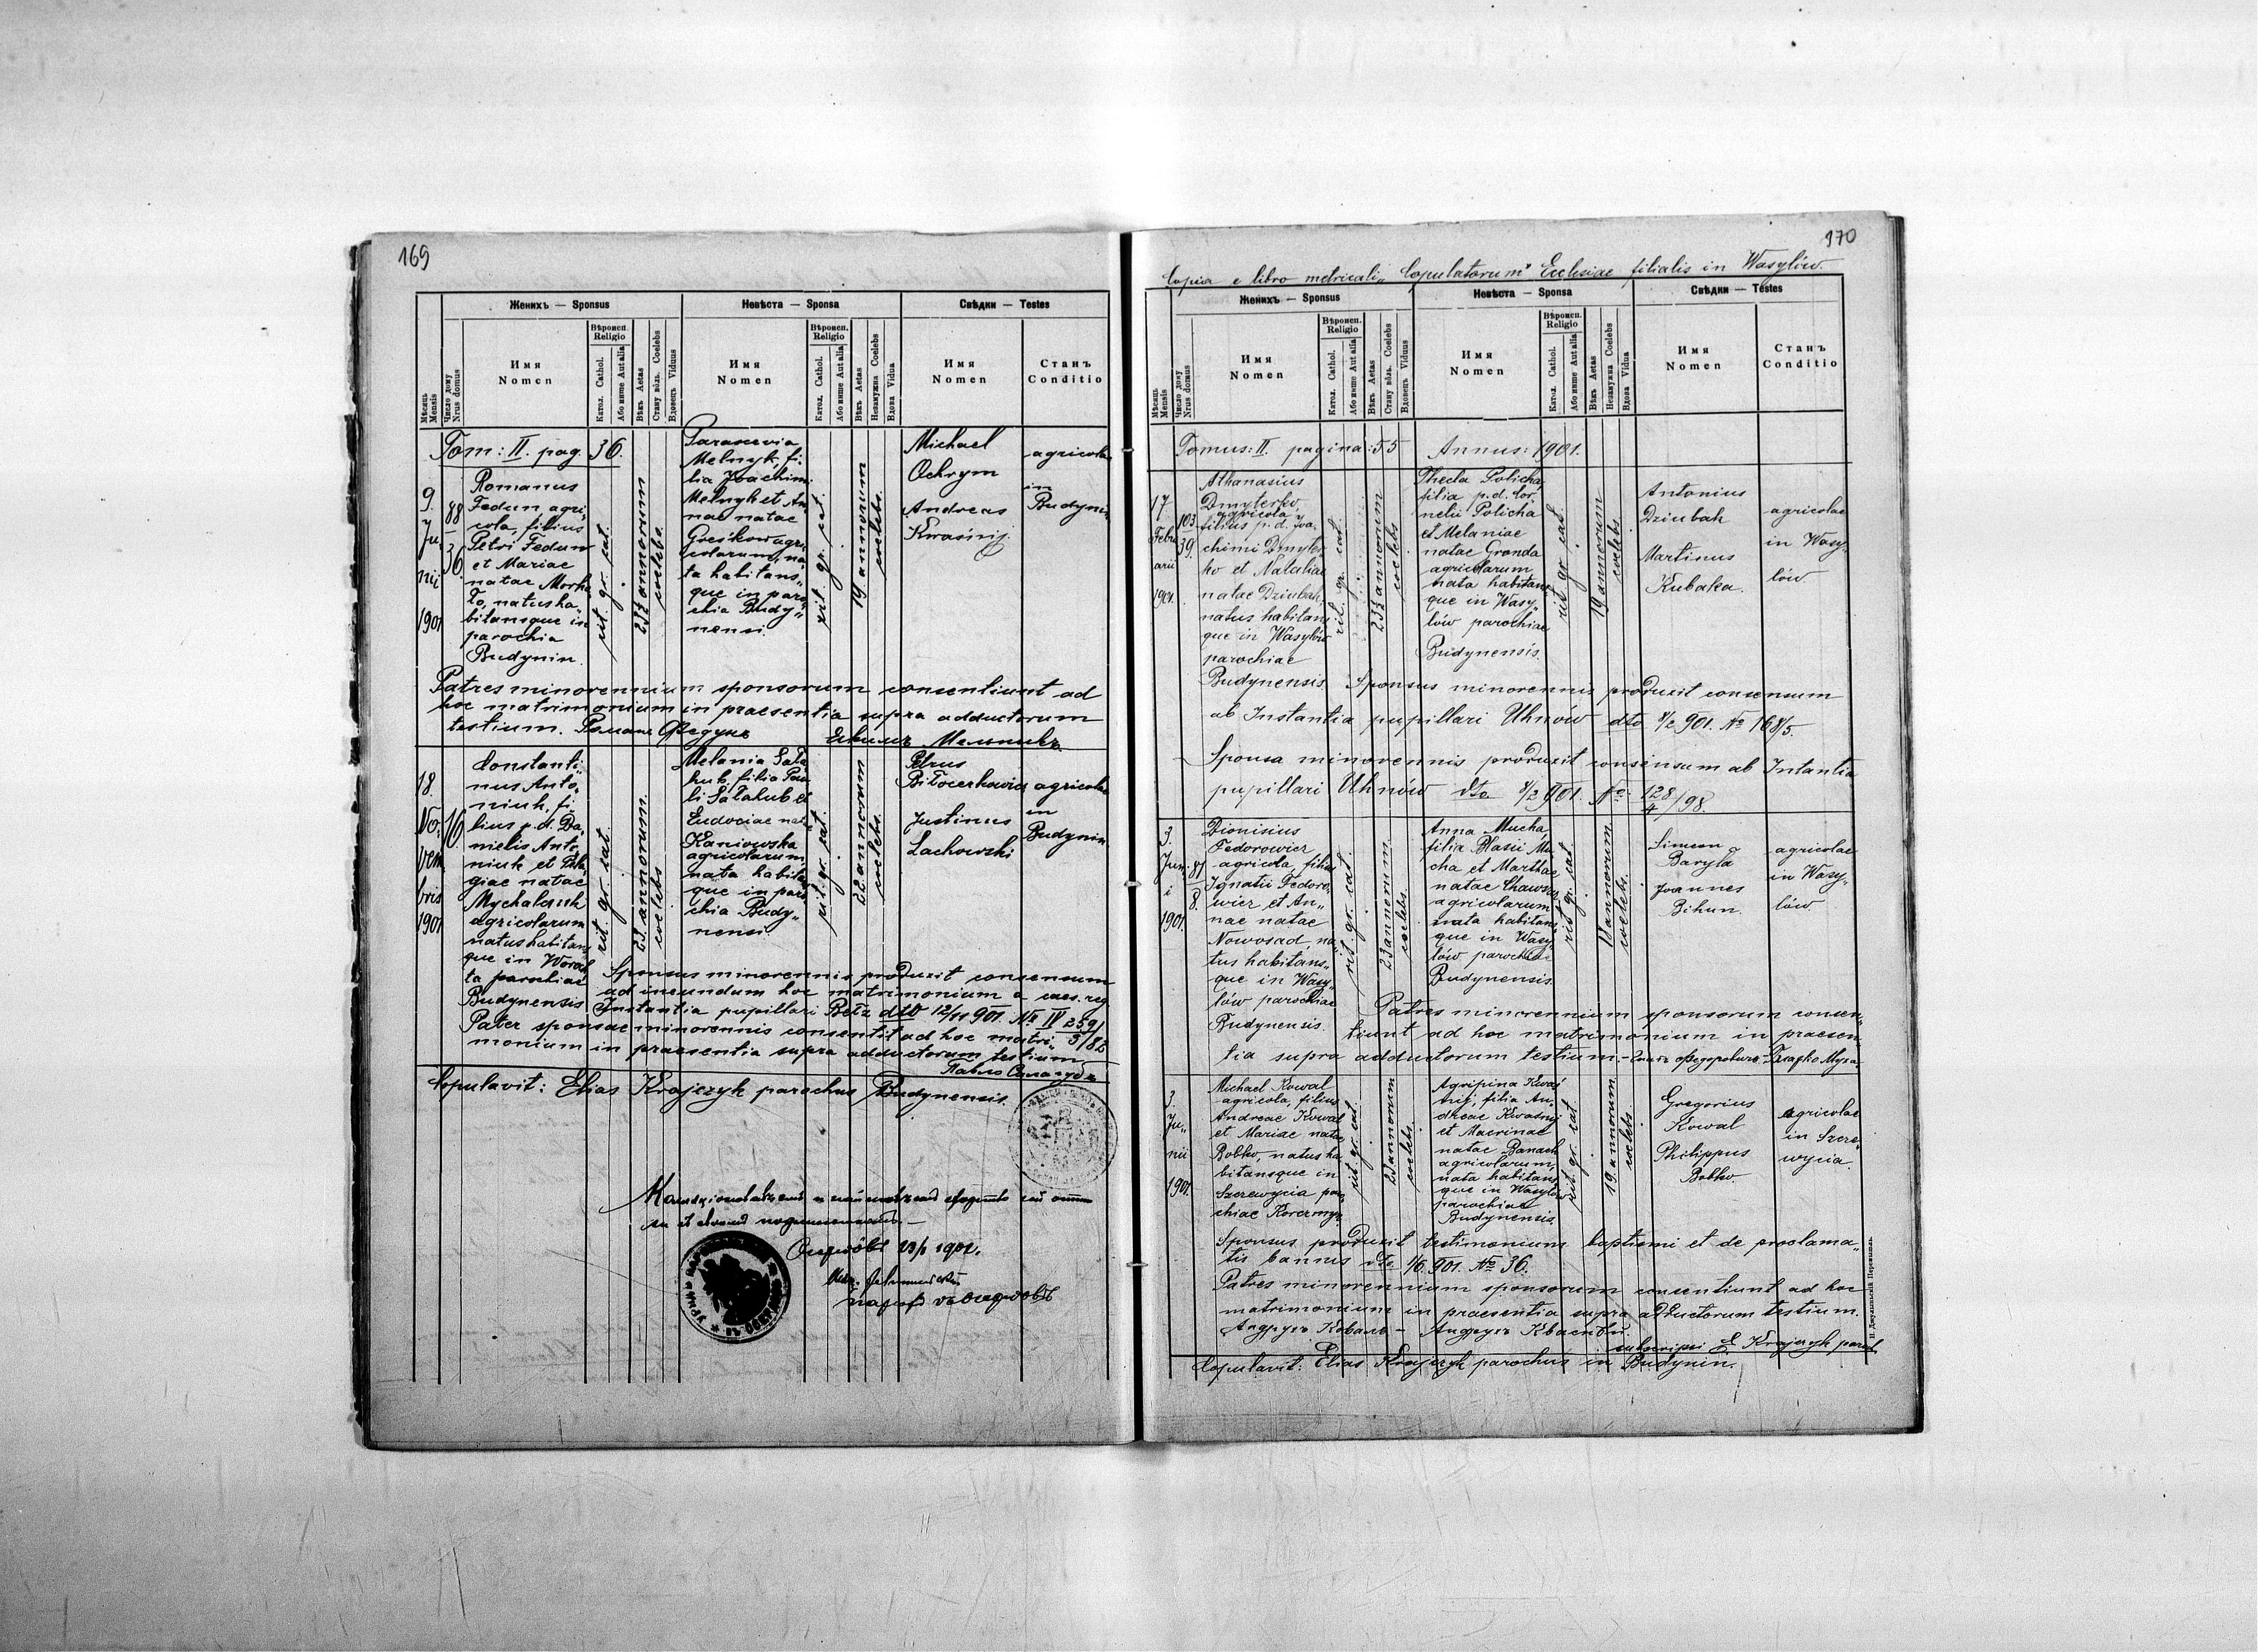 169
Женихъ — Sponsus
Невѣста — Sponsa
Свѣдки — Testes
Мѣсяць Mensis
Число дому Nrus domus
Имя
Nomen
Вѣроисп. Religio
Катол. Cathol.
Або инше Aut alia
Вѣкъ Aetas
Стану вôльн. Coelebs
Вдовець Viduus
Имя
Nomen
Вѣроисп. Religio
Катол. Cathol.
Або инше Aut alia
Вѣкъ Aetas
Незамужна Coelebs
Вдова Vidua
Имя
Nomen
Станъ
Conditio
Tom: II. pag. 36.
9.
Ju„
nii
1901
88
36
Romanus
Fedun agri„
cola, filius
Petri Fedun
et Mariae
natae
natus ha„
bitansque in
parochia
Budynin.
rit. gr. cat.
annorum
coelebs.
Parascevia
Melnyk, fi„
lia Joachim
Melnyk et An
nae natae
agri
colarum, na
ta habitans„
que in paro
chia Budy„
nensi.
rit. gr. cat.
19 annorum
coelebs.
Michael
Ochrym
Andreas
Kwaśnij.
agricolae
in
Budynin
Patres minorennium sponsorum consentiunt ad
hoc matrimonium in praesentia supra adductorum
testium. Романъ Федунъ
18.
No„
vem
bris
1901
16
Constanti„
nus Anto„
niuk, fi„
lius p. d. Da„
nielis Anto„
niuk et Pela„
giae natae
agricolarum
natus habitans
que in
parochiae
Budynensis
rit. gr. cat.
23 annorum.
coelebs
Melania Sała
hub, filia Pau
li Sałahub et
Eudociae natae
Kaniowska
agricolarum,
nata habitans
que in paro
chia Budy„
nensi.
rit. gr. cat.
22 annorum
coelebs.
Petrus
Biłocerkowicz
Justinus
Lachowski
agricolae
in
Budynin
Sponsus minorennis produxit consensum
ad ineundum hoc matrimonium a caes. reg.
Instantia pupillari Bełz dtto 12/11 901. № IV 259/
Pater sponsae minorennis consentit ad hoc matri„ 3/82
monium in praesentia supra adductorum testium
Павло Салагубъ
Copulavit: Elias Krajczyk parochus Budynensis.
1902.
170
Copia e libro metricali „Copulatorum" Ecclesiae filialis in Wasylów.
Женихъ — Sponsus
Невѣста — Sponsa
Свѣдки — Testes
Мѣсяць Mensis
Число дому Nrus domus
Имя
Nomen
Вѣроисп. Religio
Катол. Cathol.
Або инше Aut alia
Вѣкъ Aetas
Стану вôльн. Coelebs
Вдовець Viduus
Имя
Nomen
Вѣроисп. Religio
Катол. Cathol.
Або инше Aut alia
Вѣкъ Aetas
Незамужна Coelebs
Вдова Vidua
Имя
Nomen
Станъ
Conditio
Tomus: II. pagina: 55 Annus: 1901.
17
Febru
arii
1901.
103.
39.
Athanasius
Dmyterko,
agricola
filius p. d. Joa„
chimi Dmyter
ko et Nataliae
natae Dziubah,
natus habitans
que in Wasylów
parochiae
Budynensis.
rit. gr. cat.
annorum
coelebs
Thecla Policha,
filia p. d. Cor„
nelii Policha
et Melaniae
natae Granda
agricolarum
nata habitans
que in Wasy„
lów parochiae
Budynensis.
rit. gr. cat.
19 annorum
coelebs.
Antonius
Dziubah
Martinus
Kubaka.
agricolae
in Wasy„
lów
Sponsus minorennis produxit consensum
ab Instantia pupillari Uhnów dto 8/2 901. № 168/5.
Sponsa minorennis produxit consensum ab Intantia
pupillari Uhnów dto 8/2 901. № 128
4/98.
3.
Jun„
i
1901.
87
8.
Dionisius
Fedorowicz
agricola, filius
Ignatii Fedoro„
wicz et An„
nae natae
Nowosad, na„
tus habitans„
que in Wasy„
lów parochiae
Budynensis.
rit. gr. cat.
23 annorum.
coelebs.
Anna Mucha,
filia Blasii Mu
cha et Marthae
natae
agricolarum
nata habitans
que in Wasy„
lów parochiae
Budynensis.
rit. gr. cat.
annorum
coelebs.
Simeon
Baryła
Joannes
Bihun.
agricolae
in Wasy„
lów.
Patres minorennium sponsorum consen„
tiunt ad hoc matrimonium in praesen„
tia supra adductorum testium. –
3.
Ju„
nii
1901.
Michael Kowal
agricola, filius
Andreae Kowal
et Mariae natae
Bobko, natus ha
bitansque in
Szczewycia paro„
chiae
rit. gr. cat.
annorum
coelebs.
Agripina Kwaś
nij, filia An„
dreae Kwaśnij
et Macrinae
natae Banach
agricolarum,
nata habitans
que in Wasylów
parochiae
Budynensis.
rit. gr. cat.
19 annorum
coelebs.
Gregorius
Kowal
Philippus
Bobko
agricolae
in Szcze„
wycia.
Sponsus produxit testimonium baptismi et de proclama„
tis bannis dto 1/6 901. № 36.
Patres minorennium sponsorum consentiunt ad hoc
matrimonium in praesentia supra adductorum testium.
Андрухъ Коваль –
subscripsi E. Krajczyk paroch
Copulavit: Elias Krajczyk parochus in Budynin.